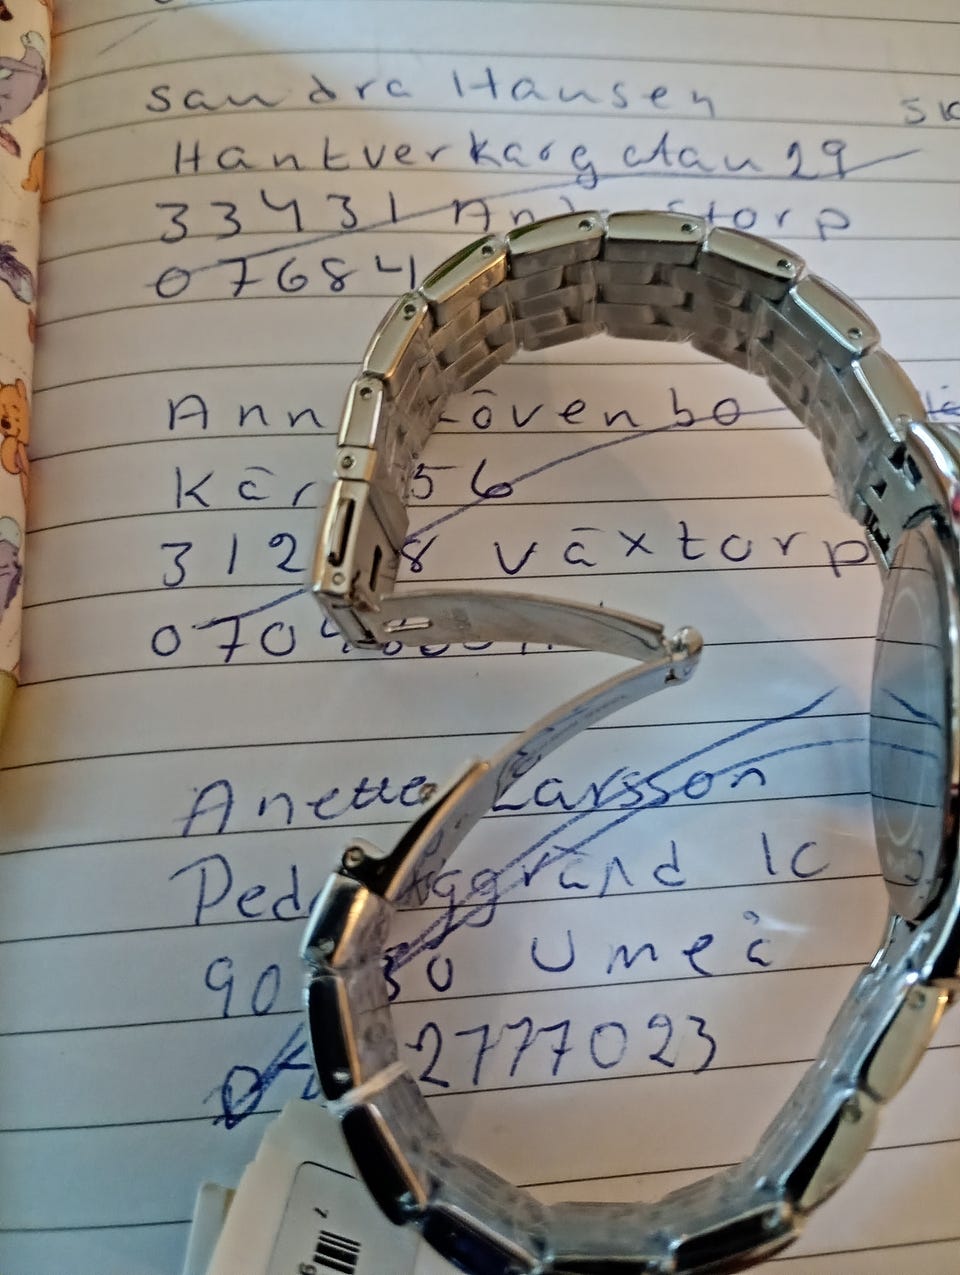 Sandra Hansen
Hantverkargatan 29
33431 And storp
07684
Ann Lövenbo
Kär 56
312 8 växtorp
070
Anette Larsson
Ped ggränd 1C
90 30 Umeå
2777023